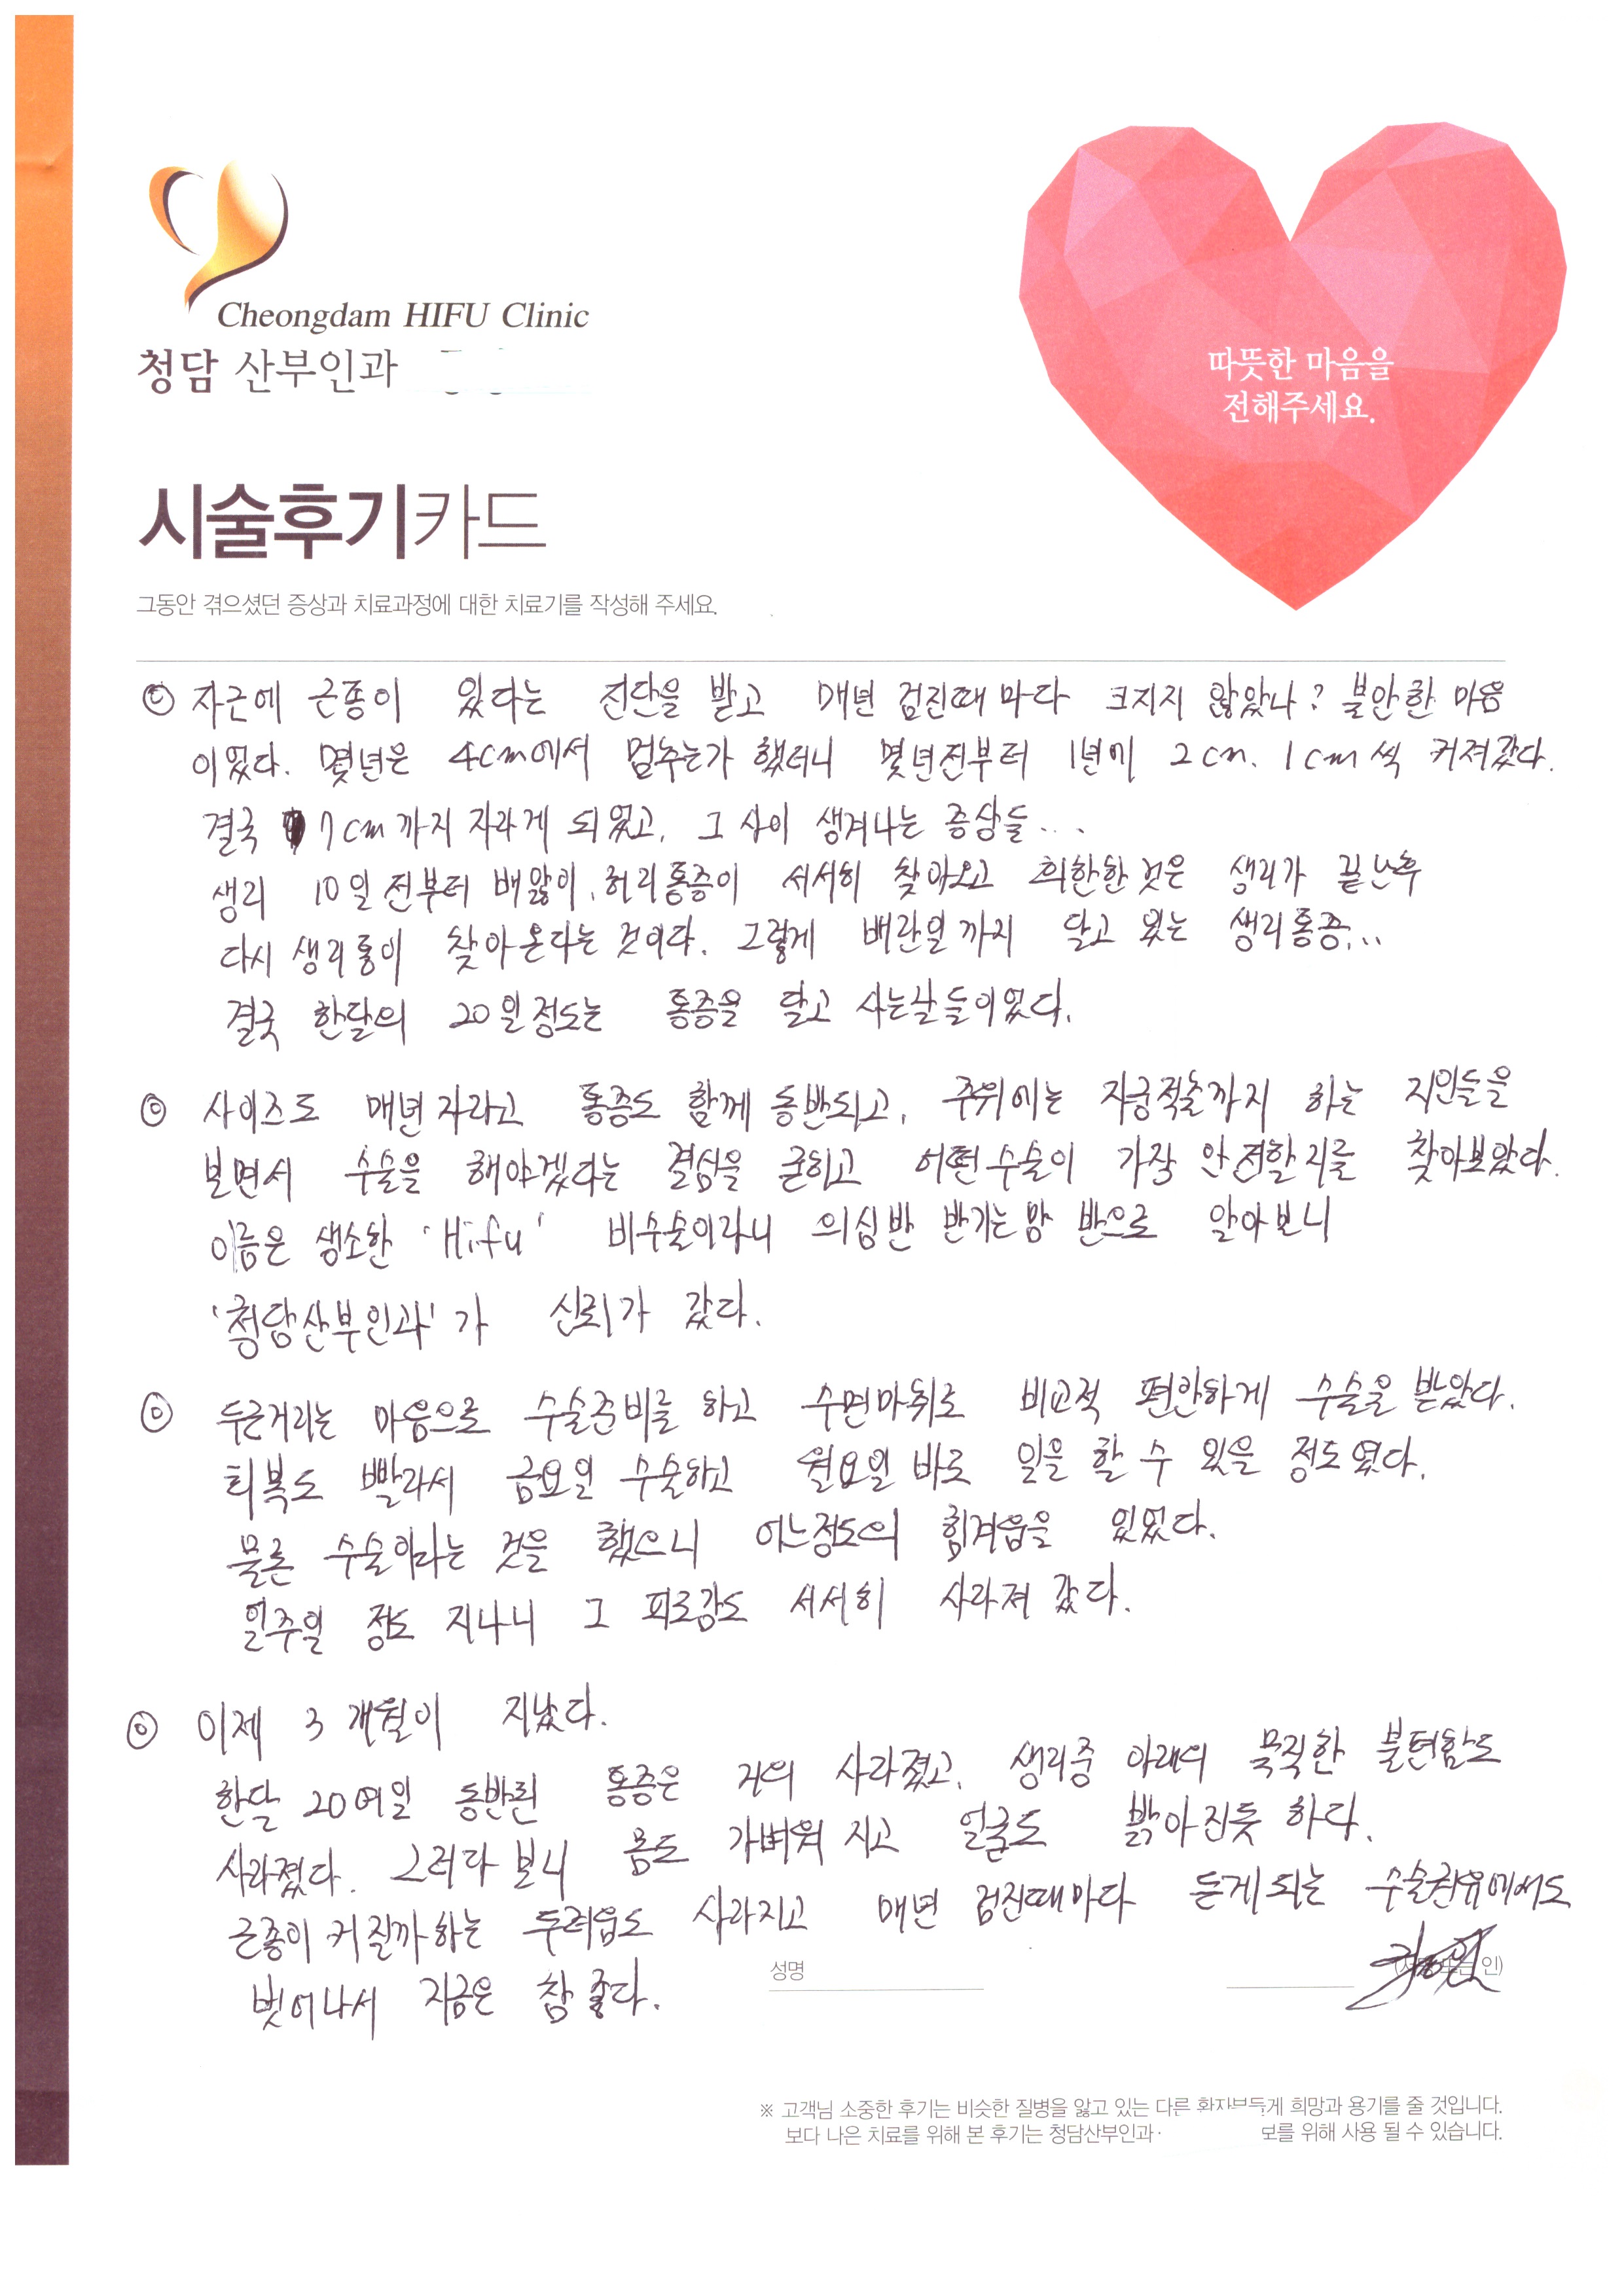 Cheongdam HIFU Clinic
청담 산부인과
따뜻한 마음을
전해주세요.
시술후기카드
그동안 겪으셨던 증상과 치료과정에 대한 치료기를 작성해 주세요.
◎ 자근에 근종이 있다는 진단을 받고 매년 검진때 마다 크지지 않았나? 불안한 마음
이었다. 몇년은 4cm에서 멈추는가 했더니 몇년전부터 1년에 2cm. 1cm씩 커져갔다.
결국 7cm까지 자라게 되었고, 그 사이 생겨나는 증상들...
생리 10일 전부터 배앓이, 허리통증이 서서히 찾아오고 희한한 것은 생리가 끝난후
다시 생리통이 찾아온다는 것이다. 그렇게 배란일까지 달고 있는 생리통증...
결국 한달의 20일정도는 통증을 달고 사는날들이었다.
◎ 사이즈도 매년 자라고 통증도 함께 동반되고, 주위에는 자궁적출까지 하는 지인들을
보면서 수술을 해야겠다는 결심을 굳히고 어떤수술이 가장 안전할지를 찾아보았다.
이름은 생소한 'Hifu' 비수술이라니 의심반 반기는맘 반으로 알아보니
'청담산부인과'가 신뢰가 갔다.
◎ 두근거리는 마음으로 수술준비를 하고 수면마취로 비교적 편안하게 수술을 받았다.
회복도 빨라서 금요일 수술하고 월요일 바로 일을 할 수 있을 정도였다.
물론 수술이라는 것을 했으니 어느정도의 힘겨움은 있었다.
일주일 정도 지나니 그 피로감도 서서히 사라져 갔다.
◎ 이제 3개월이 지났다.
한달 20여일 동반된 통증은 거의 사라졌고, 생리중 아래의 묵직한 불편함도
사라졌다. 그러다 보니 몸도 가벼워 지고 얼굴도 밝아진듯 하다.
근종이 커질까하는 두려움도 사라지고 매년 검진때마다 듣게되는 수술권유에서도
벗어나서 지금은 참 좋다.
성명 인)
※ 고객님 소중한 후기는 비슷한 질병을 앓고 있는 다른 환자분들게 희망과 용기를 줄 것입니다.
보다 나은 치료를 위해 본 후기는 청담산부인과· 보를 위해 사용 될 수 있습니다.